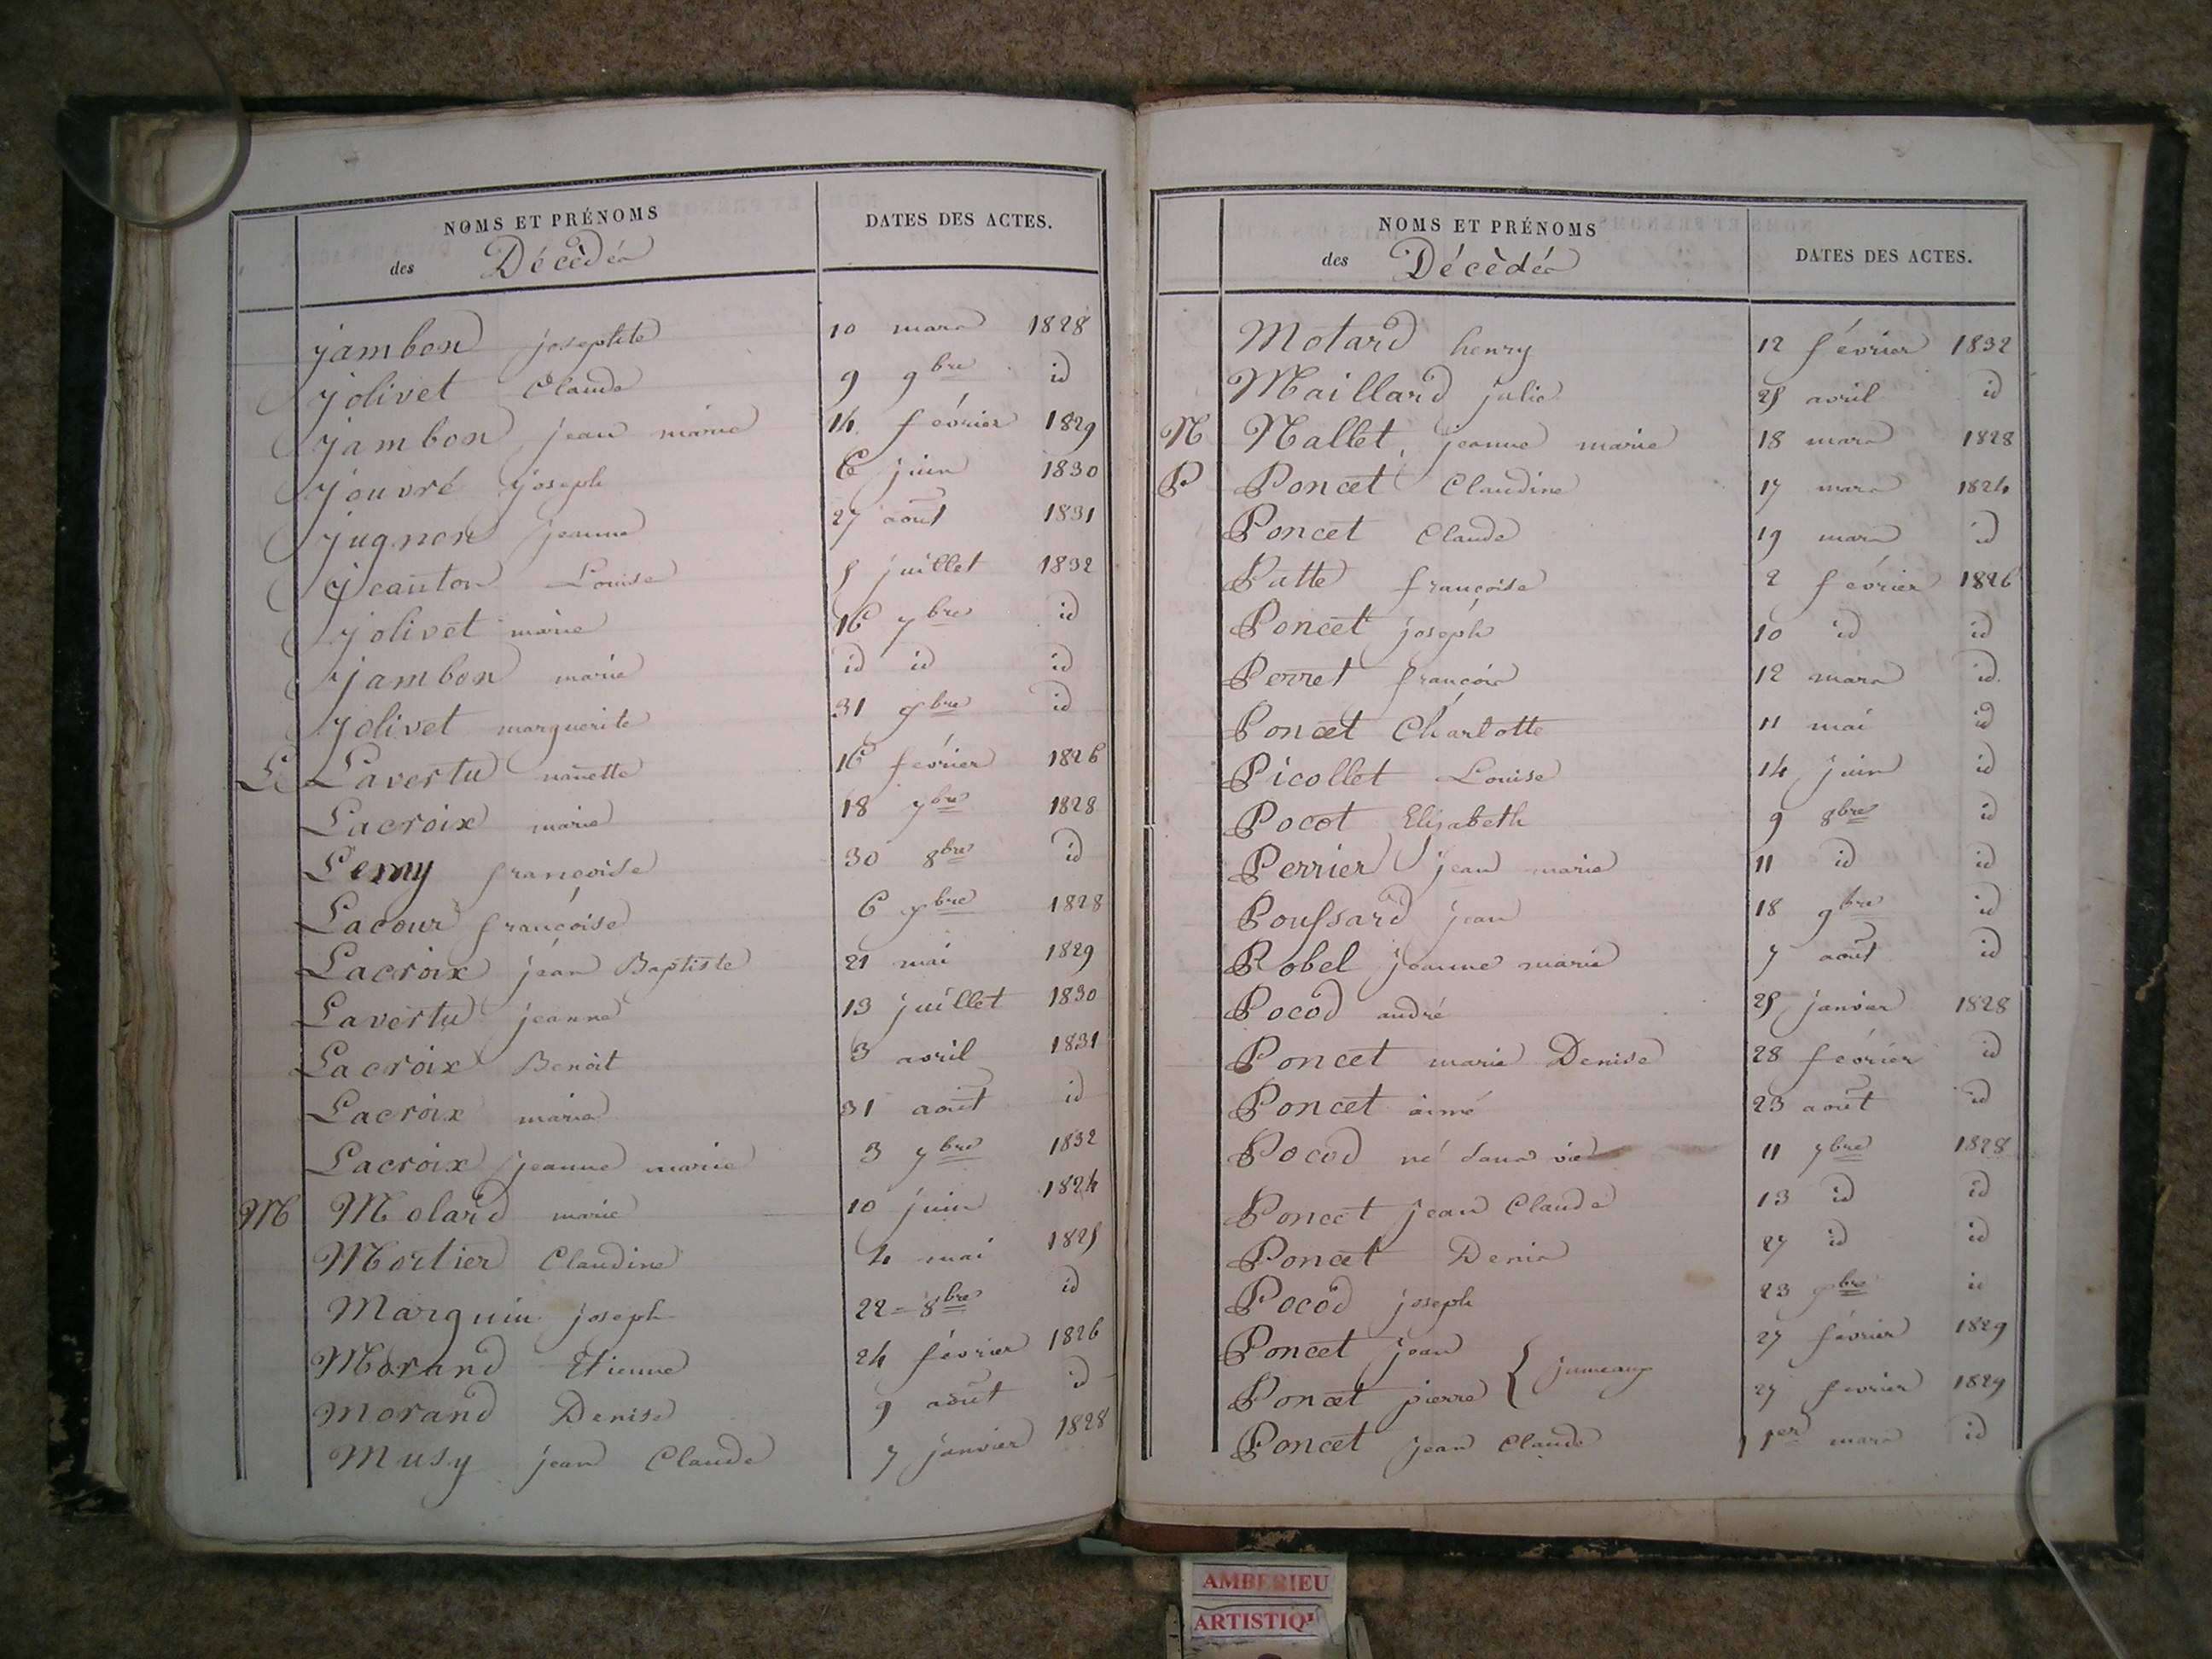 NOMS ET PRÉNOMS
des Décédés
DATES DES ACTES.
jambon josephte 10 mars 1828
jolivet Claude 9 9bre id
jambon jean marie 14 février 1829
jouvré joseph 6 juin 1830
jugnon jeanne 27 août 1831
jeanton Louise 5 juillet 1832
jolivet marie 16 7bre id
jambon marie id id id
jolivet marguerite 31 bre id
L Lavertu nanette 16 février 1826
Lacroix marie 18 7bre 1828
françoise 30 8bre id
Lacour françoise 6 bre 1828
Lacroix jean Baptiste 21 mai 1829
Lavertu jeanne 13 juillet 1830
Lacroix Benoit 3 avril 1831
Lacroix marie 31 août id
Lacroix jeanne marie 3 7bre 1832
M Molard marie 10 juin 1824
Mortier Claudine 4 mai 1825
Marguin joseph 22 = 8bre id
Morand Etienne 24 février 1826
Morand Denise 9 août id
Musy jean Claude 7 janvier 1828
NOMS ET PRÉNOMS
des Décèdés
DATES DES ACTES.
Motard henry 12 février 1832
Maillard julie 25 avril id
N Nallet jeanne marie 18 mars 1828
P Poncet Claudine 17 mars 1824
Poncet Claude 19 mars id
Putte françoise 2 février 1826
Poncet joseph 10 id id
Perret françois 12 mars id
Poncet Charlotte 11 mai id
Picollet Louise 14 juin id
Pocot Elisabeth 9 8bre id
Perrier jean marie 11 id id
Poussard jean 18 9bre id
Robel jeanne marie 7 août id
Pocod andré 25 janvier 1828
Poncet marie Denise 28 février id
Poncet aimé 23 août id
Pocod né sans vie 11 7bre 1828
Poncet jean Claude 13 id id
Poncet Denis 27 id id
Pocod joseph 23 bre id
Poncet jean 27 février 1829
Poncet pierre { jumeaux 27 fevrier 1829
Poncet jean Claude 1er mars id
AMBERIEU
ARTISTIQ